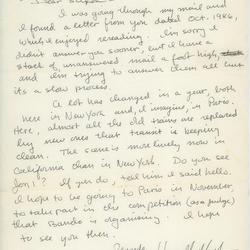 Dear
I was going through my mail and
found a letter from you dated Oct. 1986,
which I enjoyed rereading. I'm sorry I
didn't answer you sooner, but I have a
stack of unanswered mail a foot high,
and I'm trying to answer them all but
its a slow process.
A lot has changed in a year, both
here in New York and, I imagine, in Paris.
Here, almost all the old trains are replaced
by new ones that transit is keeping
clean. The scene is more lively now in
California than in New York. Do you see
Jon1? If you do, tell him I said hello.
I hope to be going to Paris in November,
to take part in the competition (as a judge)
that Bando is organising. I hope
to see you then.